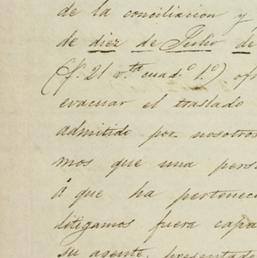 de la conciliacion y
de diez de Julio de
(f.° 21 v.ta cuad.° 1.°)
evacuar el traslado
admitido por nosotros
mos que una pers
á que ha pertenec
litigamos fuera capa
su agente, presentad